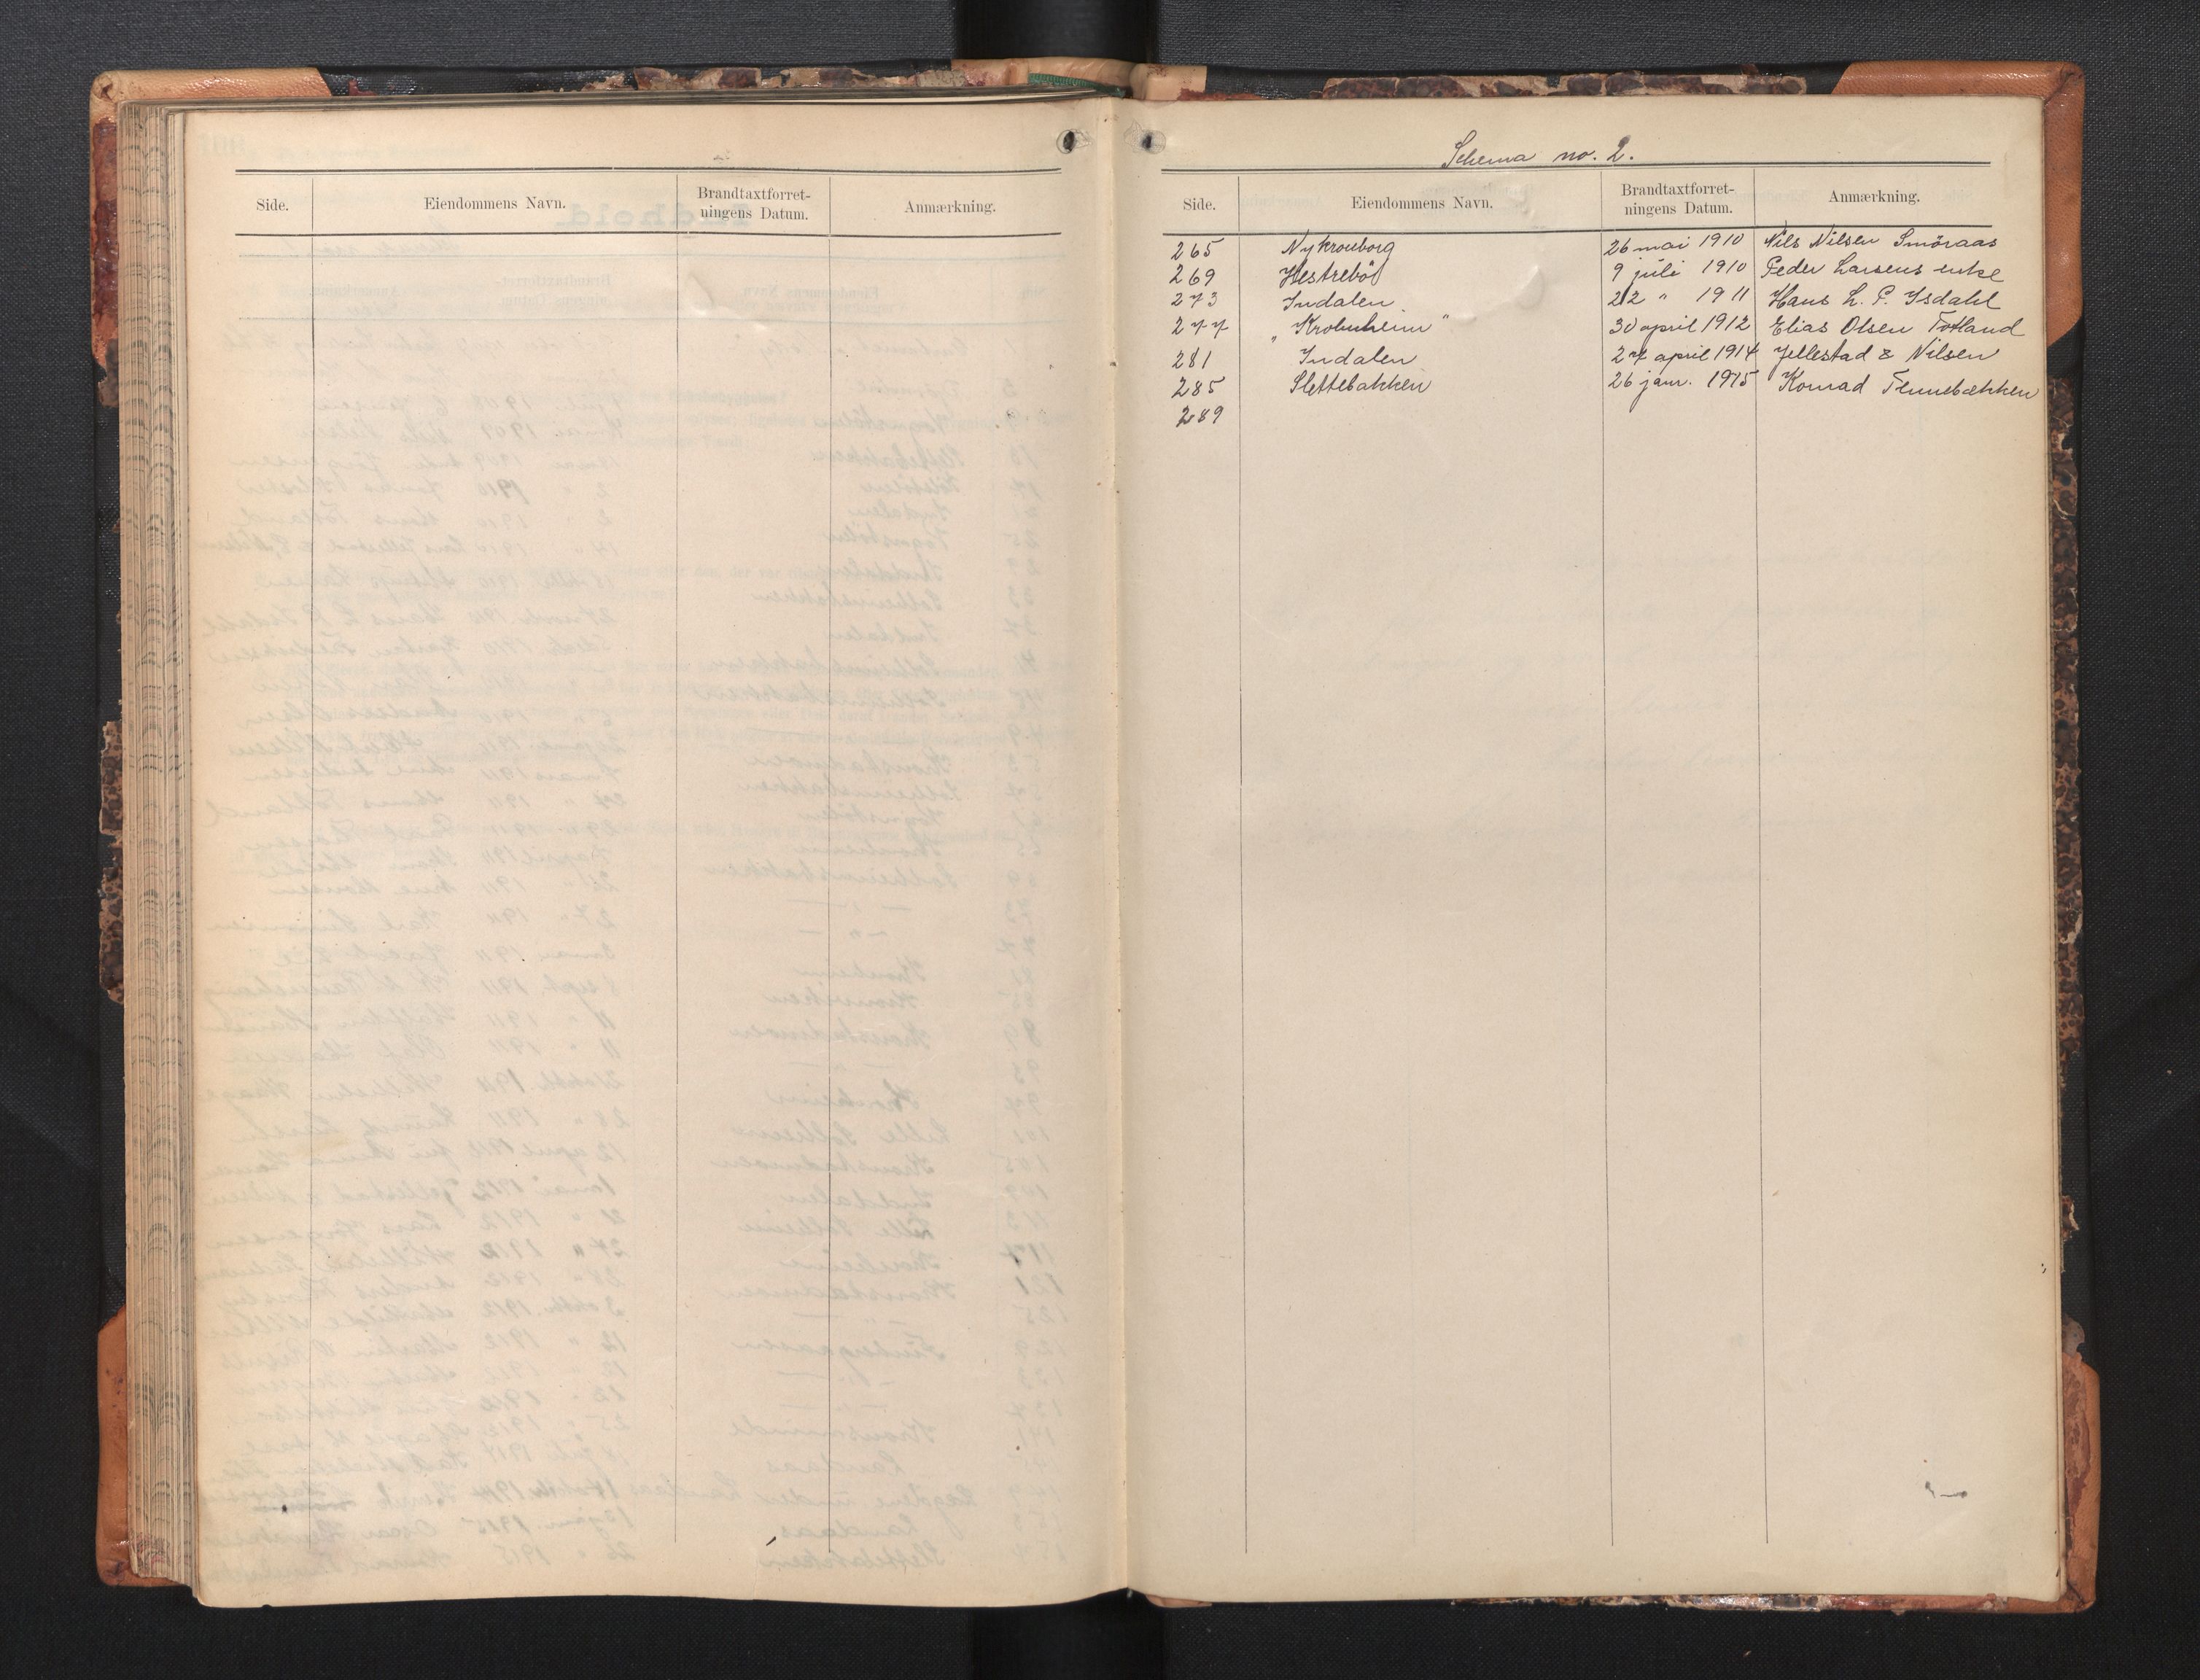 Side. Eiendommens Navn. Brandtaxtforret-ningens Datum. Anmærkning.
Schema no. 2.
Side. Eiendommens Navn. Brandtaxtforret-ningens Datum. Anmærkning.
265 Nykronborg 26 mai 1910 Nils Nilsen Smöraas
269 Hestrebö 9 juli 1910 Peder Larsens enke
273 Indalen 22 " 1911 Hans L. P. Isdahl
277 "Krohnheim" 30 april 1912 Elias Olsen Totland
281 Indalen 27 april 1914 Jellestad & Nilsen
285 Slettebakken 26 jan. 1915 Konrad Tennebekken
289